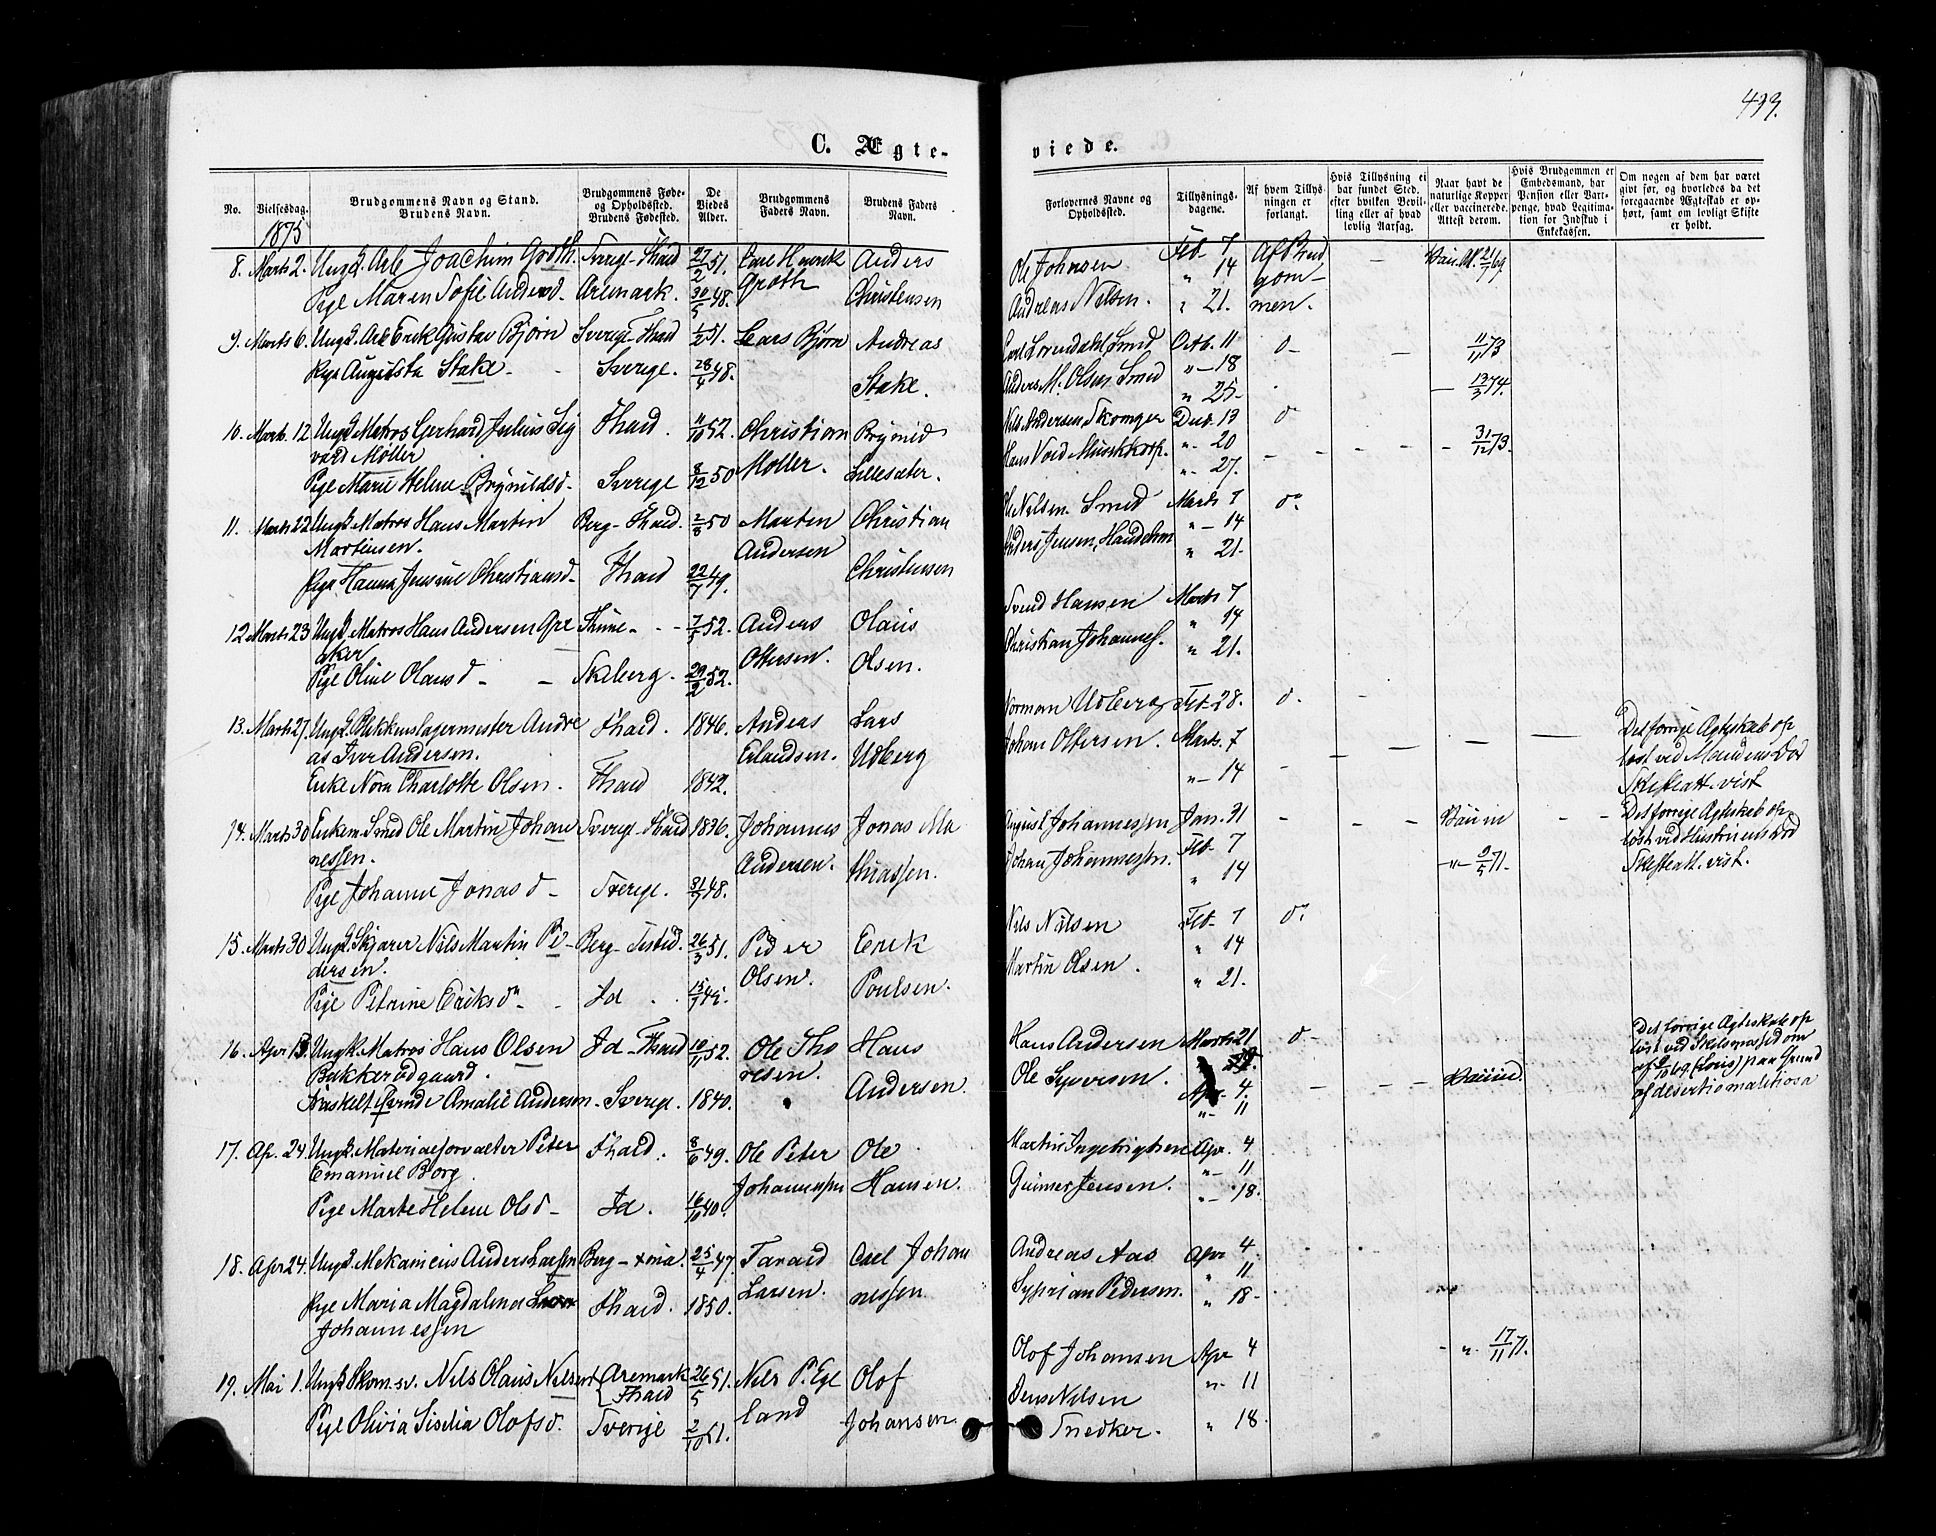 493.
C. Ægte-
viede.
No.
Vielsesdag.
Brudgommens Navn og Stand.
Brudens Navn.
Brudgommens Føde-
og Opholdsted.
Brudens Fødested.
De
Viedes
Alder.
Brudgommens
Faders Navn.
Brudens Faders
Navn.
Forlovernes Navne og
Opholdsted.
Tillysnings-
dagene.
Af hvem Tillys-
ningen er
forlangt.
Hvis Tillysning ei
har fundet Sted.
efter hvilken Bevil-
ling eller af hvad
lovlig Aarsag.
Naar havt de
naturlige Kopper
eller vaccinerede.
Attest derom.
Hvis Brudgommen er
Embedsmand, har
Pension eller Var-
penge, hvad Legitima-
tion for Indskud i
Enkekassen.
Om nogen af dem har været
givt før, og hvorledes da det
foregaaende Ægteskab er op-
hørt, samt om lovligt Skifte
er holdt.
1875
8. Marts 2. Ungk. Arb. Joachim Groth. Sverig-Fhald 27/2 51. Carl Henrik Anders
Pige Maren Sofie Andersd. Aremark. 30/5 48. Groth Christensen
Ole Johnsen Feb. 7 Af Brud
" 14 gom-
Andreas Nilsen. " 21. men.
Vac. At. 21/7 69
9. Marts 6. Ungk. Arb. Erik Gustav Bjørn Sverige-Fhald 1/2 51. Lars Bjørn Andreas
Pige Augusta Stake - Sverige. 28/4 48. Stake.
Carl Lorendahl, Smed Octb. 11 do - 11/11 73
" 18
Anders M. Olsen Smed " 25 - 13/3 74.
10. Marts 12 Ungk. Matros Gerhard Julius Sig Fhald. 11/10 52. Christian Brynild
vard Møller
Pige Marie Helene Brynildsd. Sverige 8/12 50 Møller. Lillesæter.
Nils Andersen Skomger Deci. 13 do
Hans Void Musikkorp. " 20 - 31/12 73.
" 27.
11. Marts 22 Ungk. Matros Hans Martin Berg-Fhald. 2/8 50 Marten Christian
Martinsen. Andersen
Pige Hanna Jensine Christiansd. Fhald 22/7 49. Christensen
Ole Nilsen Smed Marts 7 do
" 14
Anders Jensen, Handelsm " 21.
12 Marts 23 Ungk. Matros Hans Andersen Gre Thune - 7/3 52. Anders Olaus
aker
Pige Oline Olausd - Skiberg. 29/2 52. Ottersen. Olsen.
Svend Hansen Marts 7
" 14
Christian Johannes. " 21.
13. Marts 27. Ungk. Blikkenslagermester Andre Fhald. 1846. Andreas Lars
as Iver Andersen. Erlandsen. Udberg
Enke Nora Charlotte Olsen. Fhald 1842.
Norman Udberg Feb. 28. do
Johan Ottersen. Marts. 7
" 14
Det forrige Ægteskab op
løst ved Mandens Død
Skifteatt. vist
14. Marts 30 Enkem. Smed Ole Martin Johan Sverig-Fhald 1836. Johannes Jonas Ma
nessen. Andersen. thiassen.
Pige Johanne Jonasd - Sverige. 31/7 48.
August Johannessen Jan. 31 Vaccin
Feb. 7
Johan Johannessen. " 14 " 9/5 71.
Det forrige Ægteskab op
løst ved Hustruens Død
Skifteatt. vist.
15. Marts 30 Ungk. Skjærer Nils Martin Pe- Berg-Tistedl. 26/3 51. Peder Erik
dersen. Olsen. Poulsen.
Pige Petrine Eriksdr - Id. 15/7 45.
Nils Nilsen Feb. 7 do
" 14
Martin Olsen. " 21.
16. Apr 13. Ungk. Matros Hans Olsen Id-Fhald 10/11 52. Ole Tho Hans
Bakkerødgaard. resen. Andersen.
Fraskelt Kvinde Amalie Andersen. Sverige. 1840.
Hans Andersen Marts 21 do
Ole Syversen. Apr. 4. Vaccin.
" 11
Det forrige Ægteskab op
løst ved Skilsmissedom
af 9/10 69 (Tovis) paa Grund
af desertio malitiosa
17. Ap. 24. Ungk. Materialforvalter Peter Fhald. 8/6 49. Ole Peter Ole
Emanuel Borg Johannessen Hansen.
Pige Marte Helene Olsd - Id. 16/10 40.
Martin Ingebrigtsen Apr. 4
" 11
Gunner Jensen. " 18.
18. Apr 24. Ungk. Mekanicus Anders Larsen Berg-Xnia. 25/4 47. Tarald Carl Johan
Pige Maria Magdalena Fhald. 1850. Larsen. nessen.
Johannessen
Andreas Aas Apr 4
" 11
Syprian Pedersen. " 18
19. Mai 1. Ungk. Skom.sv. Nils Olaus Nilsen Aremark 26/5 51. Nils P. Ege Olof
Fhald land Johansen.
Pige Olivia Sisilia Olofsd. Sverige 2/10 51.
Olof Johansen Apr 4 - " 17/11 71.
" 11
Nilsen
Snedker. " 18.